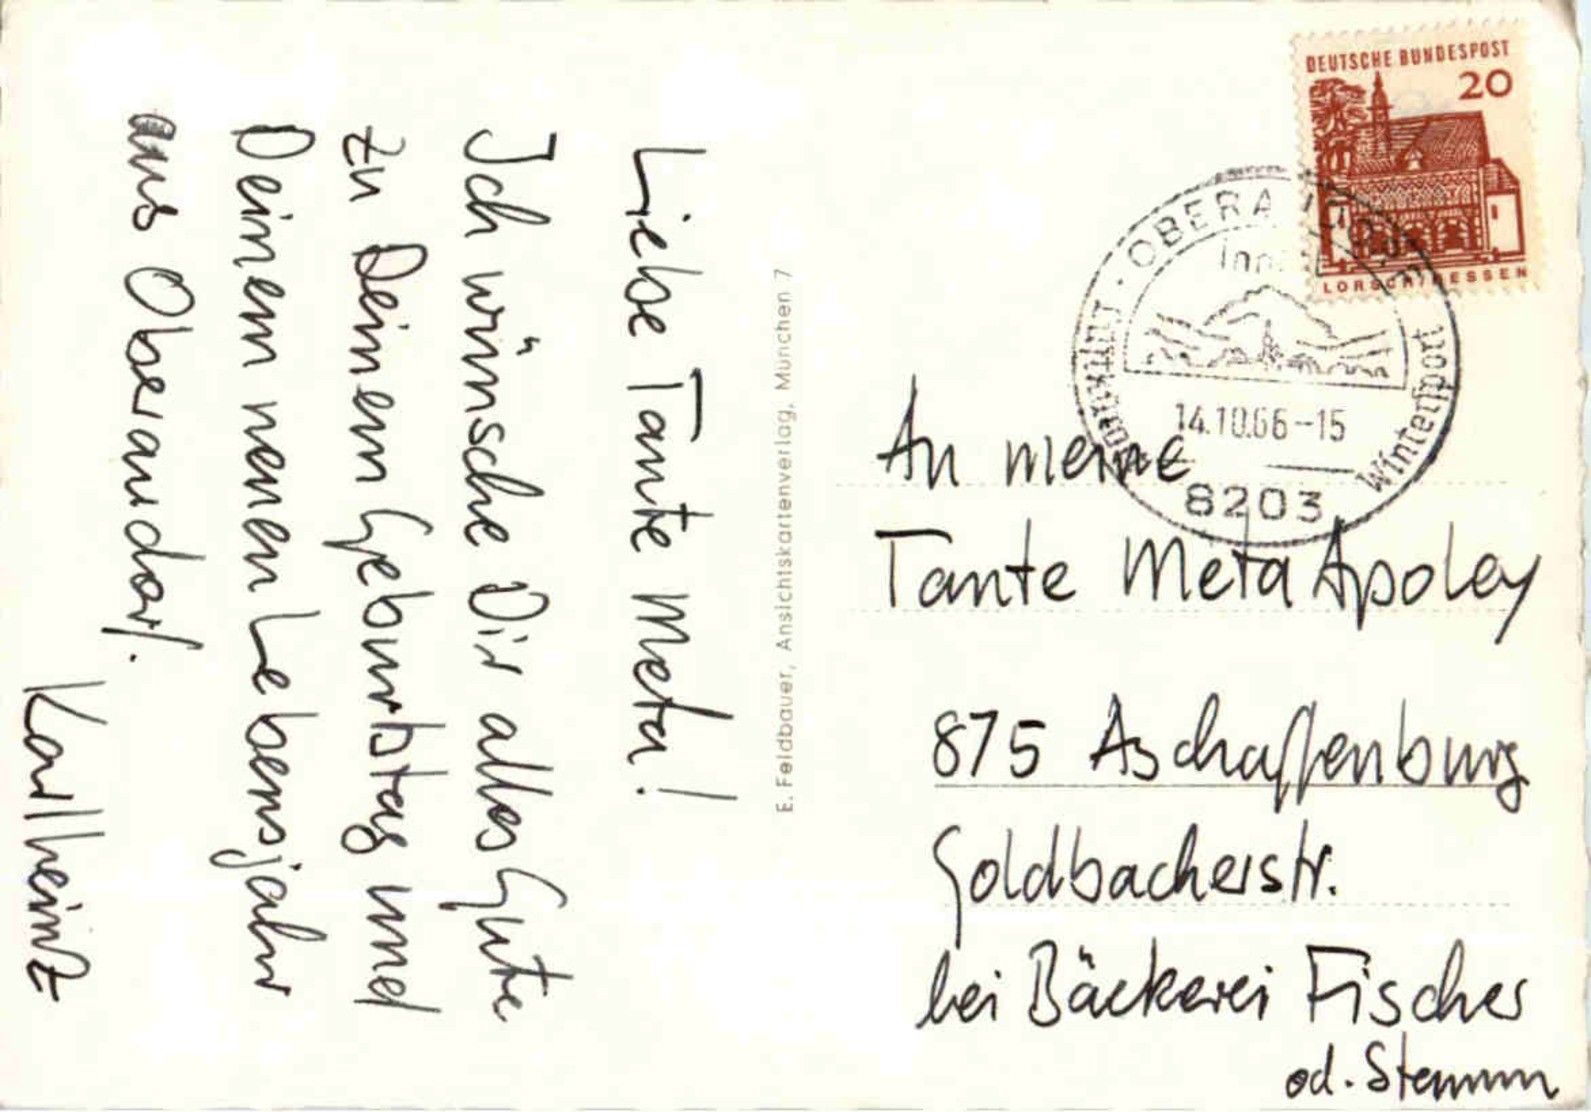 Liebe Tante Meta!
Ich wünsche Dir alles Gute
zu Deinem Geburtstag und
Deinem neuen Lebensjahr
aus Oberaudorf.
Karlheinz
E. Feldbauer, Ansichtskartenverlag, München 7
DEUTSCHE BUNDESPOST
20
LORSCH/HESSEN
OBERAUDORF
14.10.66-15
Wintersport
8203
An meine
Tante Meta Apoley
875 Aschaffenburg
Goldbacherstr.
bei Bäckerei Fischer
od. Stemm